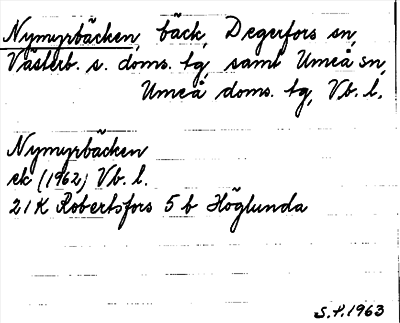 Nymyrbäcken, bäck, Degerfors sn,
Västerb. s. doms. tg, samt Umeå sn,
Umeå doms. tg, Vb. l.
Nymyrbäcken
ek (1962) Vb. l.
21K Robertsfors 5 b Höglunda
S.H. 1963